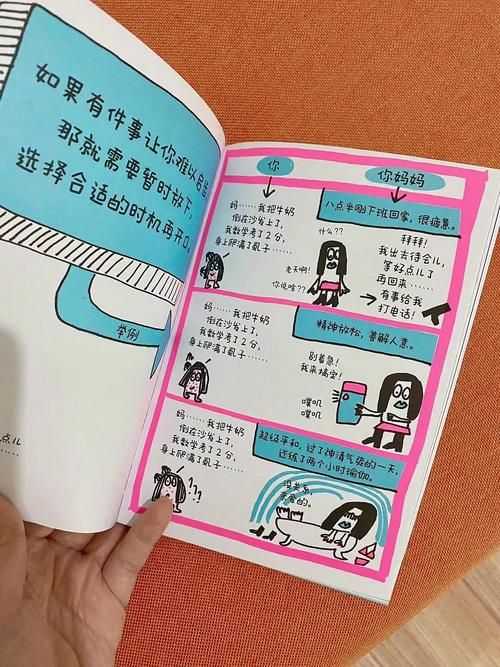 如果有件事让你难以启齿
那就需要暂时放下,
选择合适的时机再开口
举例
点儿
你
你妈妈
妈……我把牛奶
倒在沙发上了,
我数学考了2分,
身上爬满了虱子……
什么??
老天啊!
你说啥??
八点半刚下班回家,很疲惫。
拜拜!
我出去待会儿,
掌好点儿了
再回来……
有事给我
打电话!
妈……我把牛奶
倒在沙发上了,
我数学考了2分,
身上爬满了虱子……
精神放松,善解人意。
别着急!
我来搞定!
噗叽
噗叽
妈……我把牛奶
倒在沙发上了,
我数学考了2分,
身上爬满了虱子……
???
超级平和,过了神清气爽的一天,
还练了两个小时瑜伽。
没关系,
亲爱的。